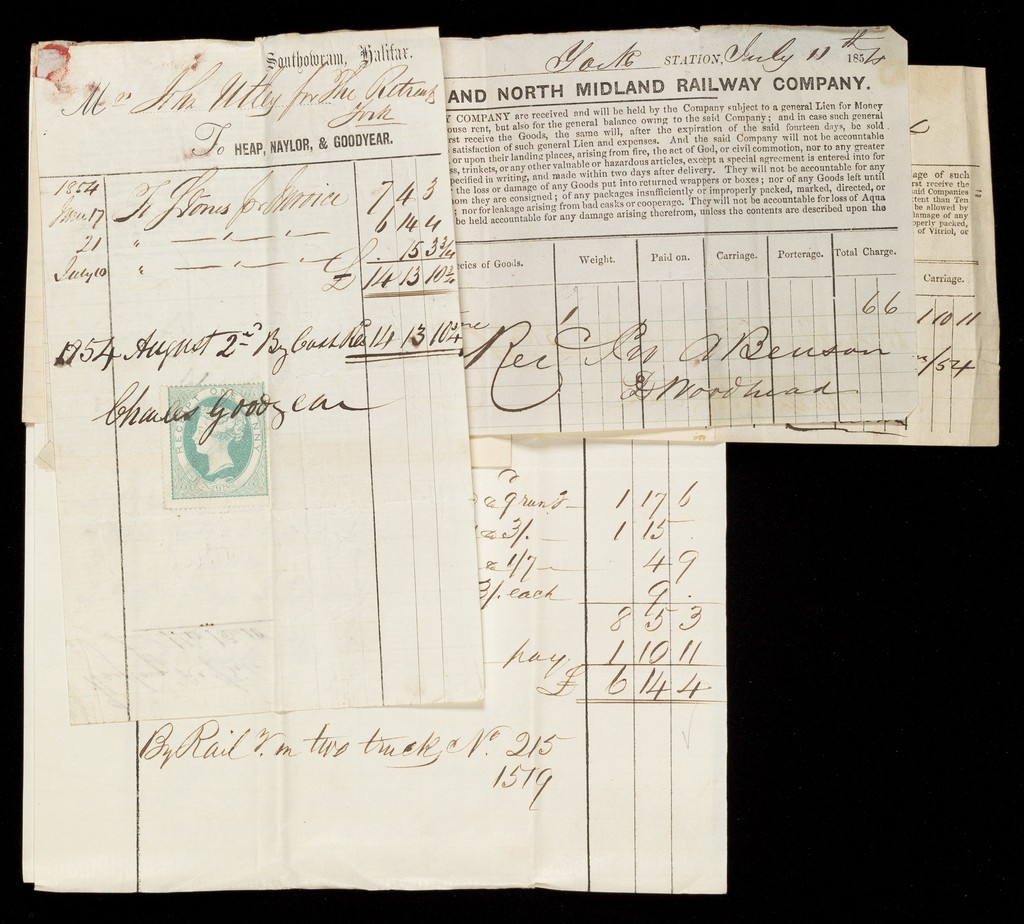 Southowram, Halifax.
Mr John Utley for The Retreat
York
To HEAP, NAYLOR, & GOODYEAR.
1854
June 17 To Stones pr Invoice 7 4 3
21 " — " — " — 6 14 4
July 10 " — " — " — . 15 3 3/4
£ 14 13 10 3/4
1854 August 2nd By Cash 14 13 10 3/4
Charles Goodyear
York STATION, July 11th 1854
AND NORTH MIDLAND RAILWAY COMPANY.
Y COMPANY are received and will be held by the Company subject to a general Lien for Money
ouse rent, but also for the general balance owing to the said Company; and in case such general
rst receive the Goods, the same will, after the expiration of the said fourteen days, be sold
satisfaction of such general Lien and expenses. And the said Company will not be accountable
, or upon their landing places, arising from fire, the act of God, or civil commotion, nor to any greater
ss, trinkets, or any other valuable or hazardous articles, except a special agreement is entered into for
pecified in writing, and made within two days after delivery. They will not be accountable for any
the loss or damage of any Goods put into returned wrappers or boxes; nor of any Goods left until
om they are consigned; of any packages insufficiently or improperly packed, marked, directed, or
; nor for leakage arising from bad casks or cooperage. They will not be accountable for loss of Aqua
be held accountable for any damage arising therefrom, unless the contents are described upon the
ecies of Goods. Weight. Paid on. Carriage. Porterage. Total Charge.
6 6
Rec Benson
Woodhead
age of such
rst receive the
said Companies
tent than Ten
be allowed by
damage of any
operly packed,
of Vitriol, or
Carriage.
1 10 11
/54
1 17 6
a 3/. — 1 15 .
a 1/7 — 4 9
3/. each 9 .
8 5 3
pay 1 10 11
£ 6 14 4
By Rail in two trucks No. 215
1519